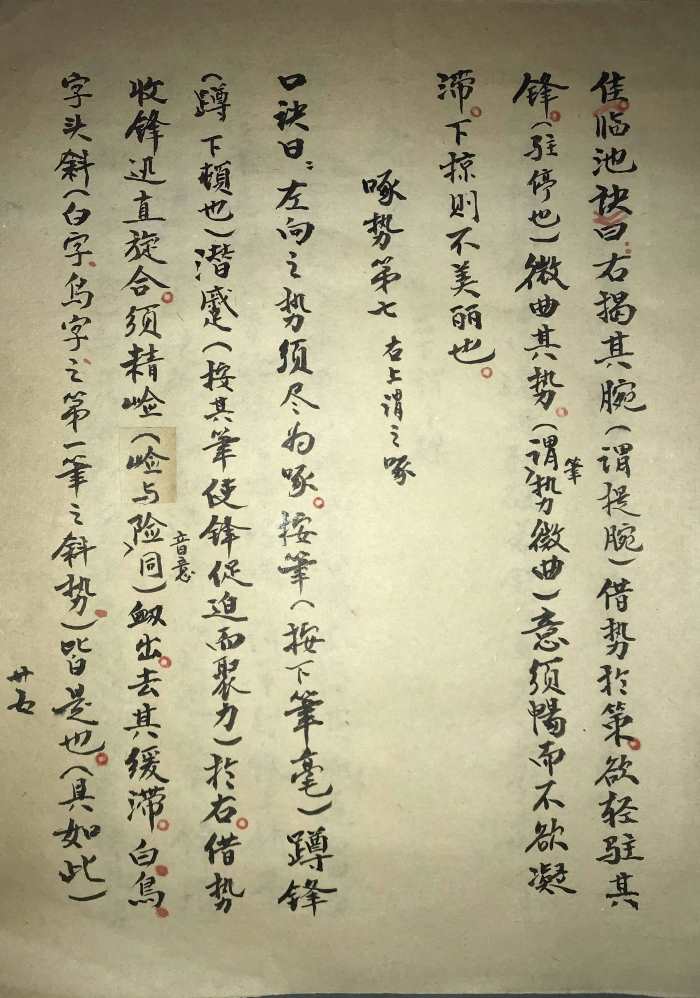 佳。临池诀曰：右揭其腕（谓提腕）借势于策。欲轻驻其
锋。（驻停也）微曲其势。（谓笔势微曲）意须畅而不欲凝
滞。下掠则不美丽也。
啄势第七 右上谓之啄
口诀曰：左向之势须尽为啄。按筆（按下筆毫）蹲锋
（蹲下顿也）潜蹙（按其筆使锋促迫而聚力）于右。借势
收锋迅直旋合。须精崄（崄与险音意同）衄出。去其缓滞。白、鳥、
字头斜（白字、鸟字之第一筆之斜势。）皆是也。（具如此）
廿五